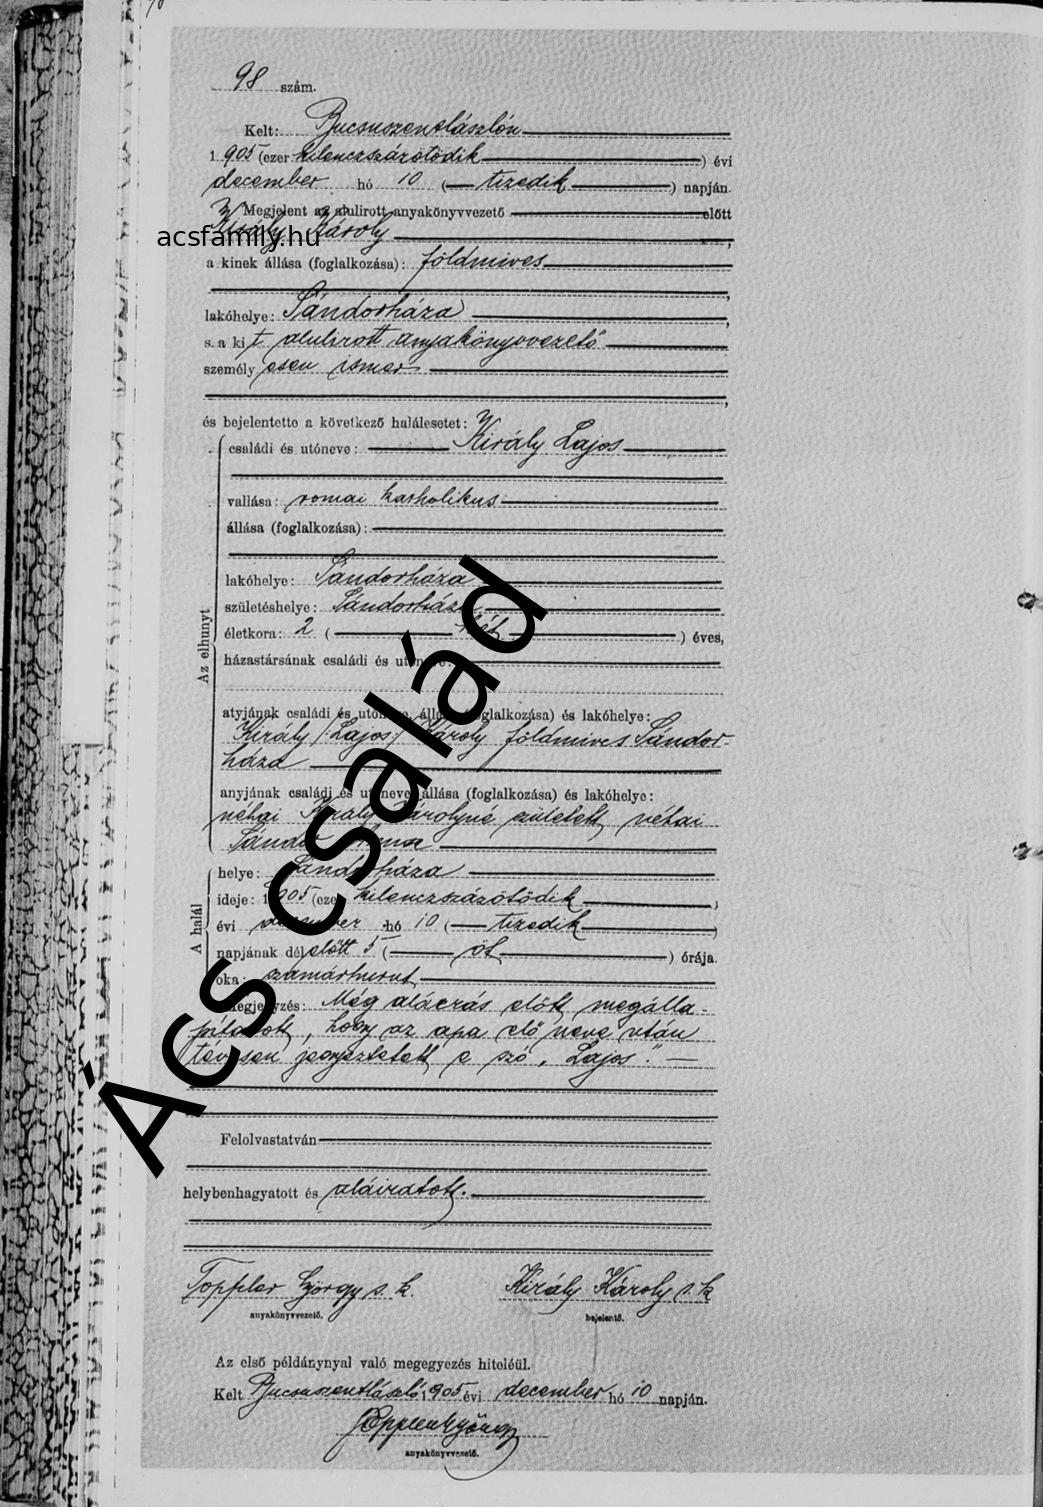 98 szám.
Kelt: Bucsuszentlászlón
1905 (ezer kilenczszázötödik) évi
december hó 10 (tizedik) napján.
Megjelent az alulirott anyakönyvvezető előtt
Király Károly,
acsfamily.hu
a kinek állása (foglalkozása): földmives
lakóhelye: Sándorháza,
s a kit alulirott anyakönyvvezető
személyesen ismer,
és bejelentette a következő halálesetet:
családi és utóneve: Király Lajos
vallása: romai katholikus
állása (foglalkozása):
lakóhelye: Sándorháza
születéshelye: Sándorháza
Az elhunyt
életkora: 2 (két) éves,
házastársának családi és utóneve:
atyjának családi és utóneve, állása (foglalkozása) és lakóhelye:
Király /:Lajos:/ Károly földmives Sándor-
háza
anyjának családi és utóneve, állása (foglalkozása) és lakóhelye:
néhai Király Károlyné született néhai
Sándor
helye: Sándorháza
ideje: 1905 (ezer kilenczszázötödik)
A halál
évi december hó 10 (tizedik)
napjának délelőtt 5 (öt) órája.
oka: szamárhurut
Megjegyzés: Még aláirás előtt megálla-
pittatott, hogy az apa elő neve után
tévesen jegyeztetett e szó „Lajos". —
Felolvastatván
helybenhagyatott és aláiratott.
Toppler György s. k.
Király Károly s. k.
anyakönyvvezető.
bejelentő.
Az első példánynyal való megegyezés hiteléül.
Kelt Bucsuszentlászló 1905 évi december hó 10 napján.
Toppler György
anyakönyvvezető.
Ács család